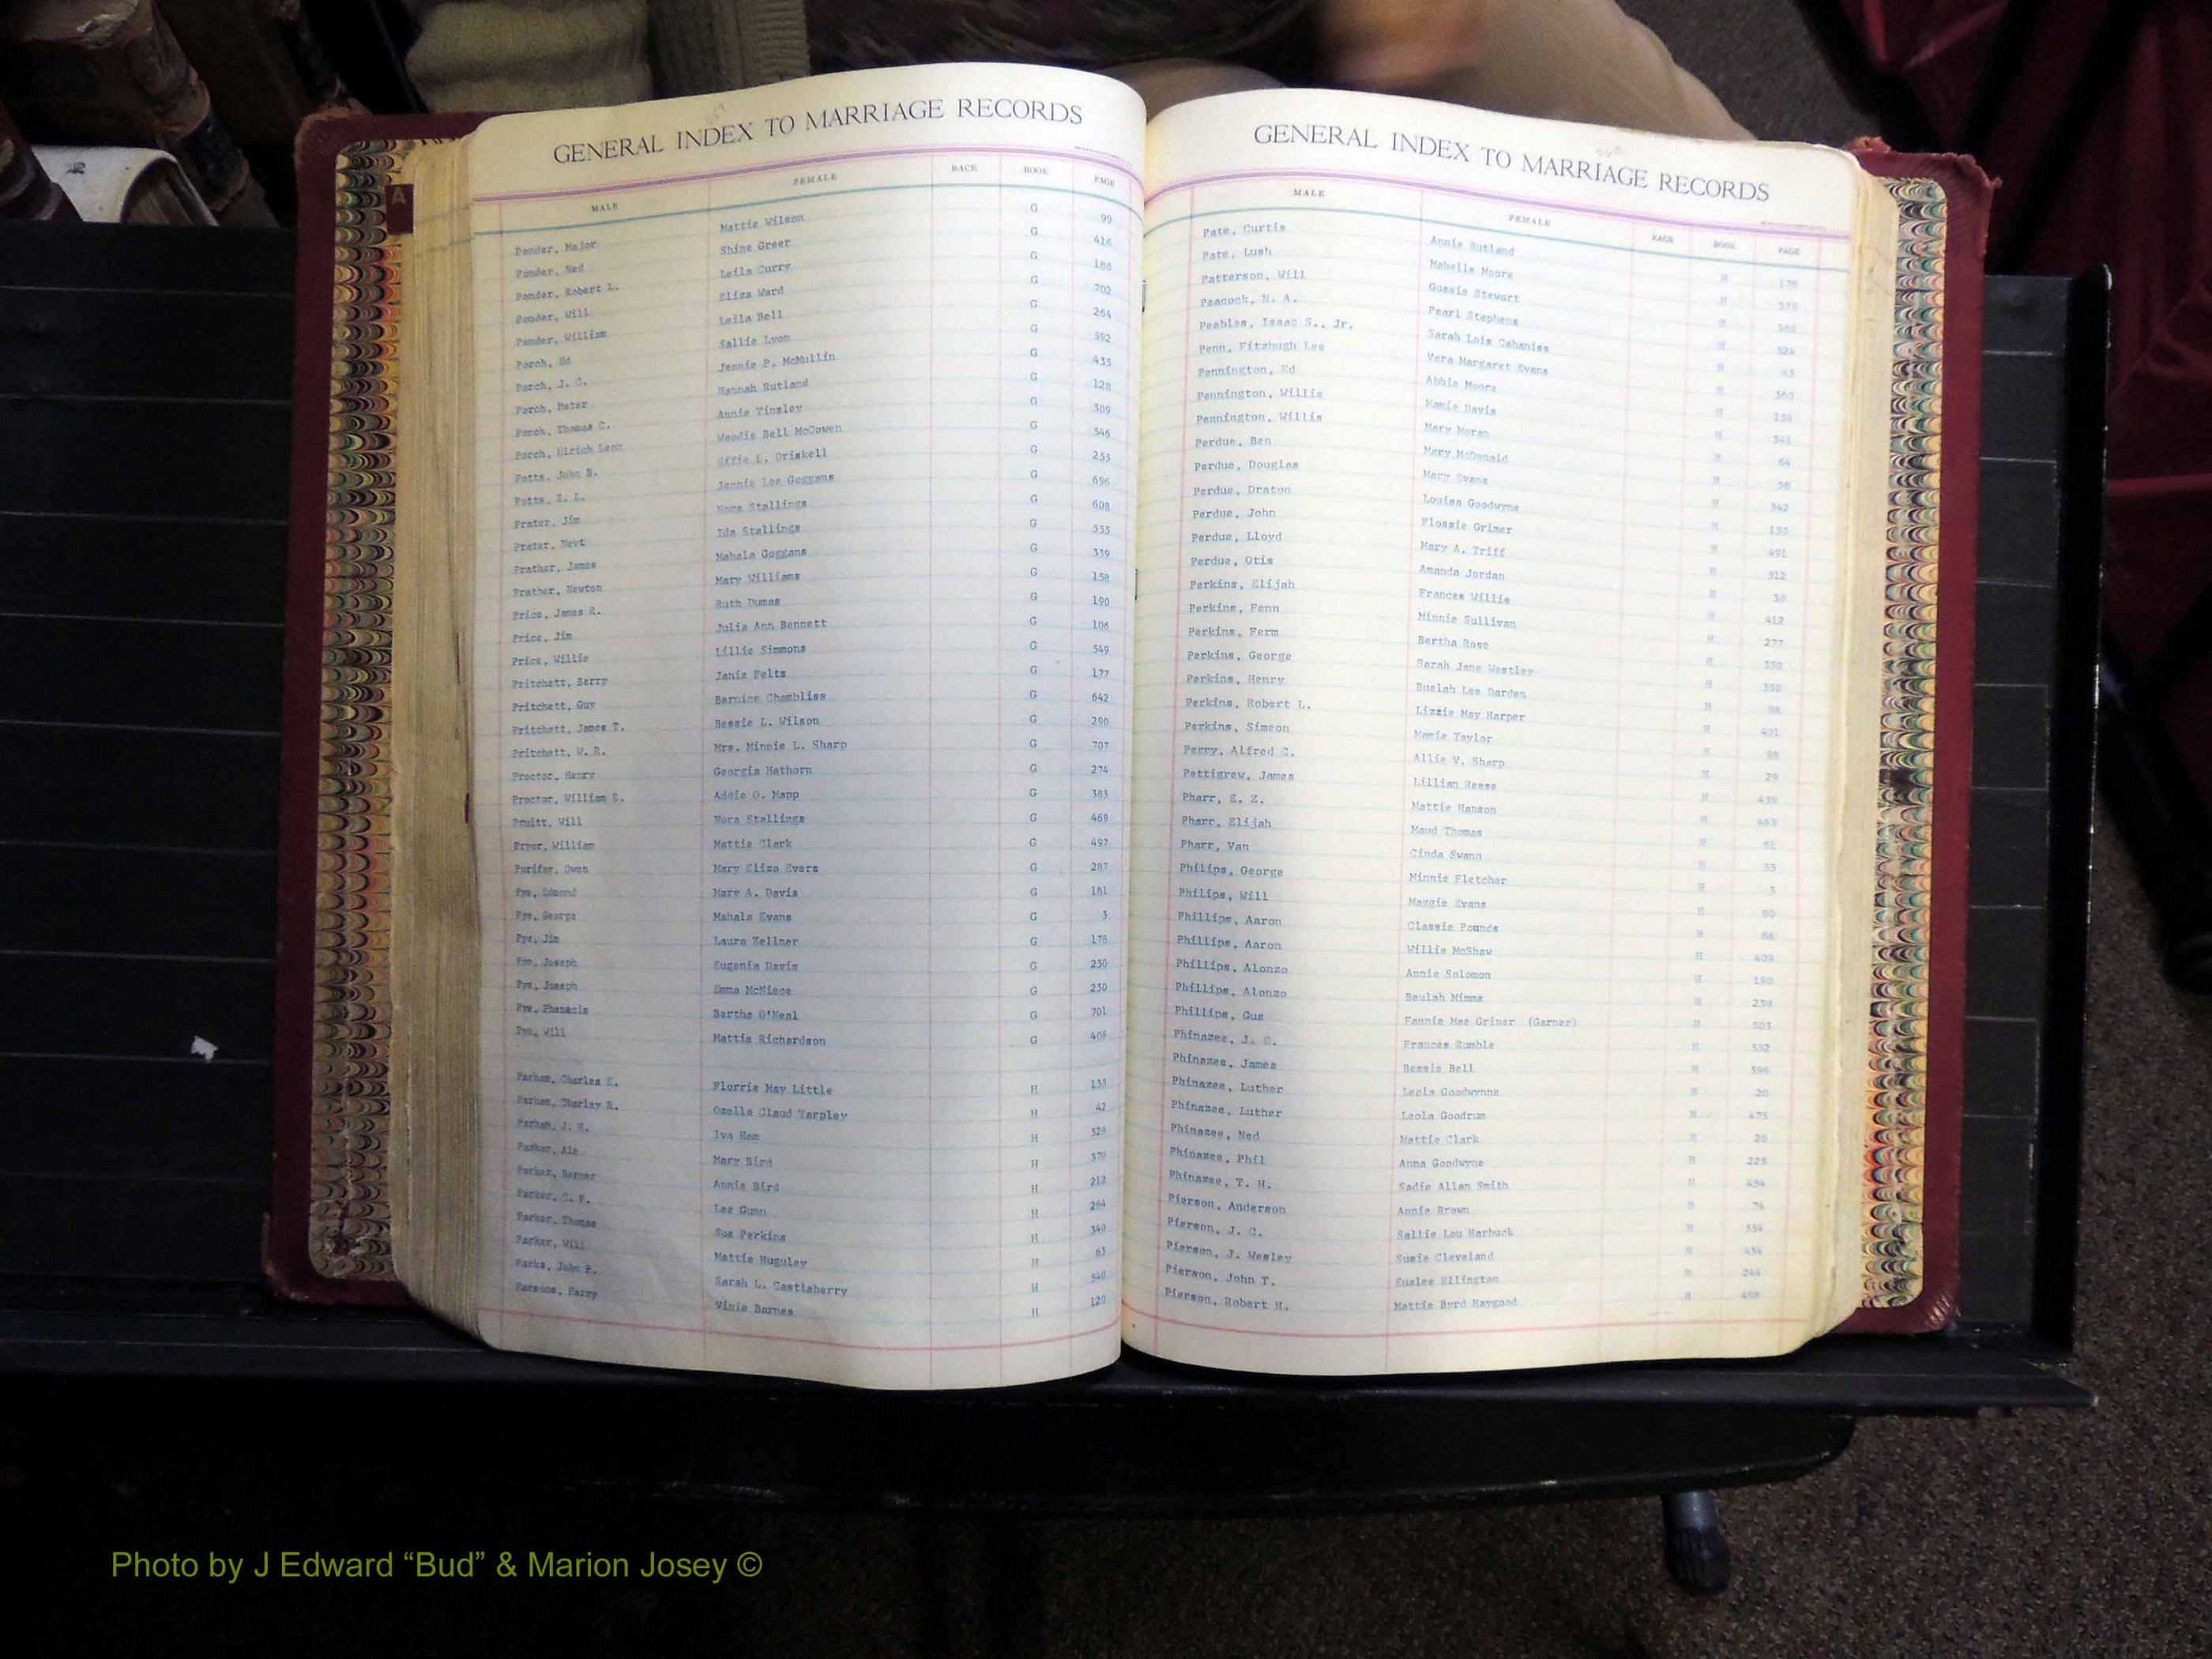 GENERAL INDEX TO MARRIAGE RECORDS
MALE FEMALE RACE BOOK PAGE
Ponder, Major Mattie Wilson G 99
Ponder, Ned Shine Greer G 416
Ponder, Robert L. Leila Curry G 186
Ponder, Will Eliza Ward G 702
Ponder, William Leila Bell G 264
Porch, Ed Sallie Lyon G 592
Porch, J. C. Jennie P. McMullin G 435
Porch, Peter Hannah Rutland G 128
Porch, Thomas C. Annie Tinsley G 309
Porch, Ulrich Leon Woodie Bell McCowen G 546
Potts, John B. Effie L. Driskell G 255
Potts, S. L. Jennie Lee Goggans G 696
Prater, Jim Nora Stallings G 608
Prater, Newt Ida Stallings G 555
Prather, James Mahala Goggans G 339
Prather, Newton Mary Williams G 158
Price, James R. Ruth Dumas G 190
Price, Jim Julia Ann Bennett G 106
Price, Willie Lillie Simmons G 549
Pritchett, Berry Janie Felts G 177
Pritchett, Guy Bernice Chambliss G 642
Pritchett, James T. Bessie L. Wilson G 290
Pritchett, W. R. Mrs. Minnie L. Sharp G 707
Proctor, Henry Georgia Hathorn G 274
Proctor, William S. Addie O. Mapp G 383
Pruitt, Will Nora Stallings G 469
Pryor, William Mattie Clark G 497
Purifoy, Owen Mary Eliza Evers G 287
Pye, Edmond Mary A. Davis G 181
Pye, George Mahala Evans G 3
Pye, Jim Laura Zellner G 178
Pye, Joseph Eugenia Davis G 230
Pye, Joseph Emma McNiece G 230
Pye, Bertha O'Neal G 701
Pye, Will Mattie Richardson G 406
Parham, Charles E. Florrie May Little H 133
Parham, Charley R. Ozella Claud Tarpley H 42
Parham, J. Iva Ham H 326
Parker, Mary Bird H 370
Parker, Annie Bird H 212
Parker, C. Lee Gunn H 264
Parker, Thomas Sue Perkins H 340
Parker, Will Mattie Huguley H 63
Parks, John P. Sarah L. Castleberry H 540
Parsons, Perry Vinie Barnes H 120
GENERAL INDEX TO MARRIAGE RECORDS
MALE FEMALE RACE BOOK PAGE
Pate, Curtis Annie Rutland H 170
Pate, Lush Mabelle Moore H 375
Patterson, Will Gussie Stewart H 380
Peacock, N. A. Pearl Stephens H 524
Peebles, Isaac S., Jr. Sarah Lois Cabaniss H 43
Penn, Fitzhugh Lee Vera Margaret Evans H 360
Pennington, Ed Abbie Moore H 154
Pennington, Willie Mamie Davis H 341
Pennington, Willis Mary Moran H 64
Perdue, Ben Mary McDonald H 58
Perdue, Douglas Mary Evans H 342
Perdue, Draton Louisa Goodwyne H 155
Perdue, John Flossie Grimer H 491
Perdue, Lloyd Mary A. Triff H 512
Perdue, Otis Amanda Jordan H 30
Perkins, Elijah Frances Willis H 412
Perkins, Fenn Minnie Sullivan H 277
Perkins, Ferm Bertha Rose H 350
Perkins, George Sarah Jane Westley H 390
Perkins, Henry Buelah Lee Darden H 98
Perkins, Robert L. Lizzie May Harper H 401
Perkins, Simeon Mamie Taylor H 88
Perry, Alfred C. Allie V. Sharp H 29
Pettigrew, James Lillian Reese H 436
Pharr, E. Z. Mattie Hanson H 465
Pharr, Elijah Maud Thomas H 61
Pharr, Van Cinda Swann H 55
Philips, George Minnie Fletcher H 3
Philips, Will Maggie Evans H 80
Phillips, Aaron Classie Pounds H 66
Phillips, Aaron Willie McShaw H 409
Phillips, Alonzo Annie Solomon H 190
Phillips, Alonzo Beulah Mimms H 238
Phillips, Gus Fannie Mae Griner (Garner) H 303
Phinazee, J. C. Frances Rumble H 532
Phinazee, James Bessie Bell H 396
Phinazee, Luther Leola Goodwynne H 20
Phinazee, Luther Leola Goodrum H 475
Phinazee, Ned Mattie Clark H 20
Phinazee, Phil Anna Goodwyne H 225
Phinazee, T. H. Sadie Allen Smith H 434
Pierson, Anderson Annie Brown H 74
Pierson, J. C. Sallie Lou Harbuck H 334
Pierson, J. Wesley Susie Cleveland H 434
Pierson, John T. Eualee Ellington H 244
Pierson, Robert H. Mattie Byrd Haygood H 488
Photo by J Edward “Bud” & Marion Josey ©